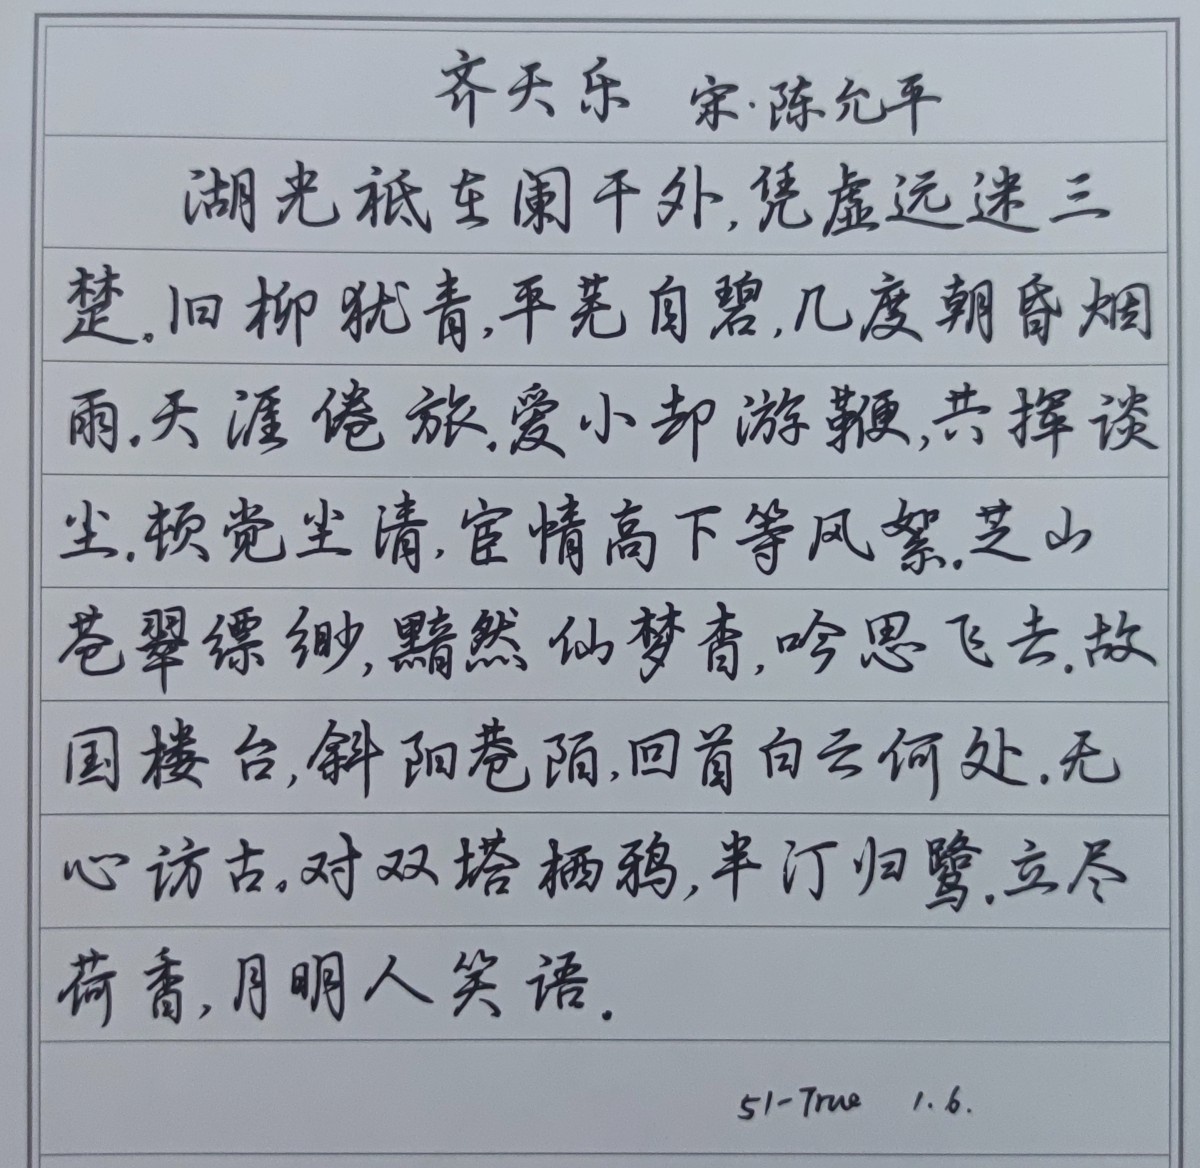 齐天乐 宋·陈允平
湖光祗在阑干外,凭虚远迷三
楚。旧柳犹青,平芜自碧,几度朝昏烟
雨.天涯倦旅.爱小却游鞭,共挥谈
尘.顿觉尘清,宦情高下等风絮.芝山
苍翠缥缈,黯然仙梦杳,吟思飞去.故
国楼台,斜阳巷陌,回首白云何处.无
心访古。对双塔栖鸦,半汀归鹭.立尽
荷香,月明人笑语.
51-True 1.6.